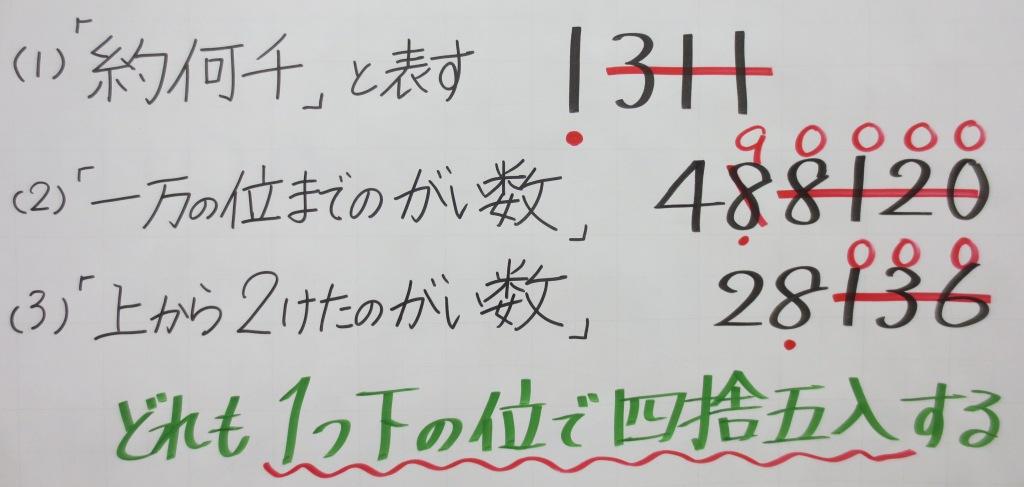 (1)「約何千」と表す 1311
90000
(2)「一万の位までのがい数」 488120
000
(3)「上から2けたのがい数」 28136
どれも1つ下の位で四捨五入する